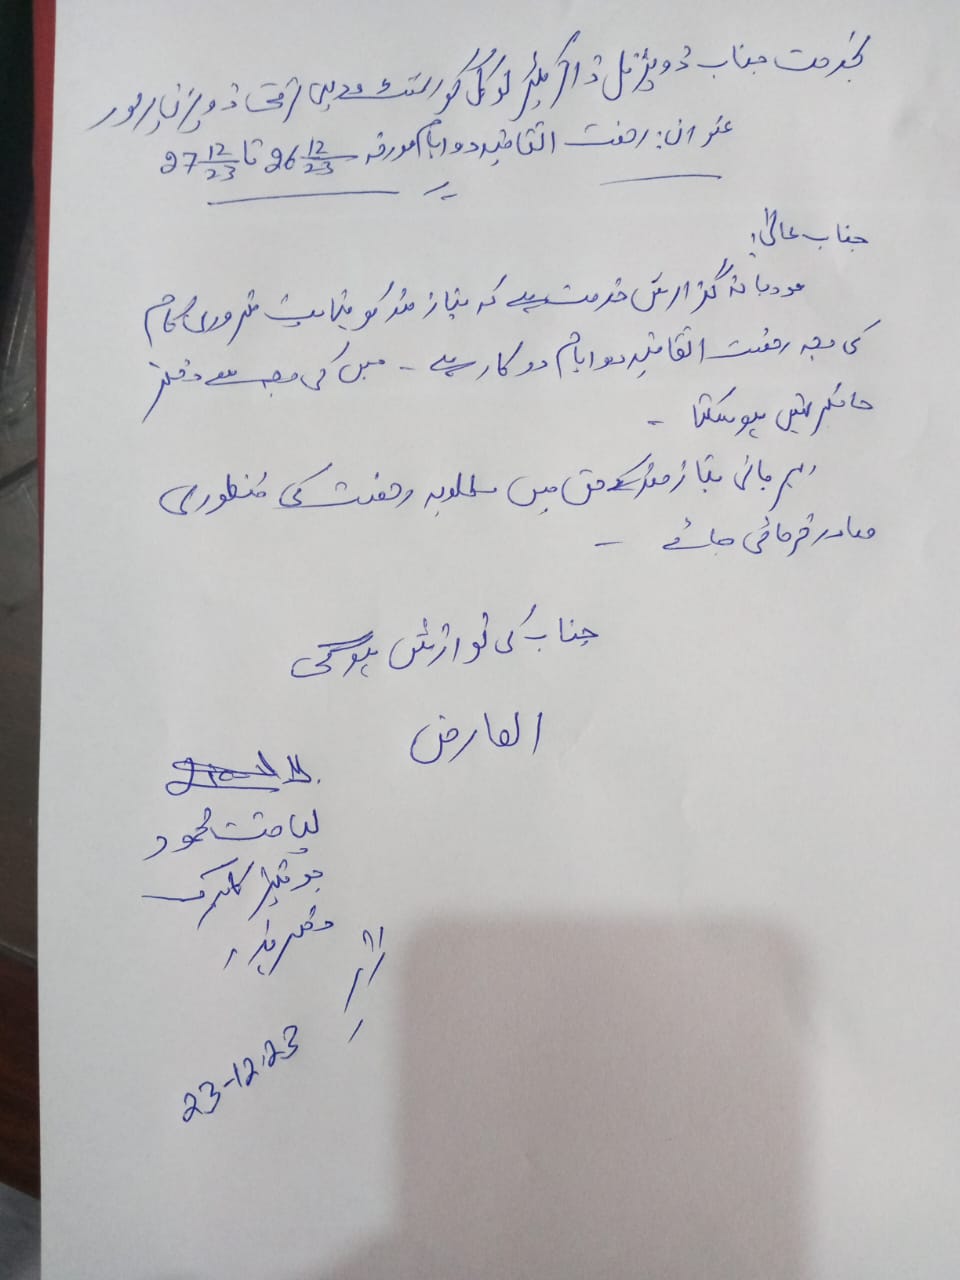 بخدمت جناب ڈویژنل ڈائریکٹر لوکل گورنمنٹ و دیہی ترقی ڈویژن میرپور
عنوان: رخصت اتفاقیہ دو ایام مورخہ 26 12/23 تا 27 12/23
جناب عالیٰ!
مودبانہ گزارش خدمت ہے کہ نیاز مند کو نہایت ضروری کام
کی وجہ رخصت اتفاقیہ دو ایام درکار ہے ۔ جس کی وجہ سے دفتر
حاضر نہیں ہو سکتا ۔
مہربانی نیاز مند کے حق میں مطلوبہ رخصت کی منظوری
صادر فرمائی جائے ۔
جناب کی نوازش ہوگی
العارض
لیاقت محمود
جونیئر کلرک
دفتر ہذا
23-12-23